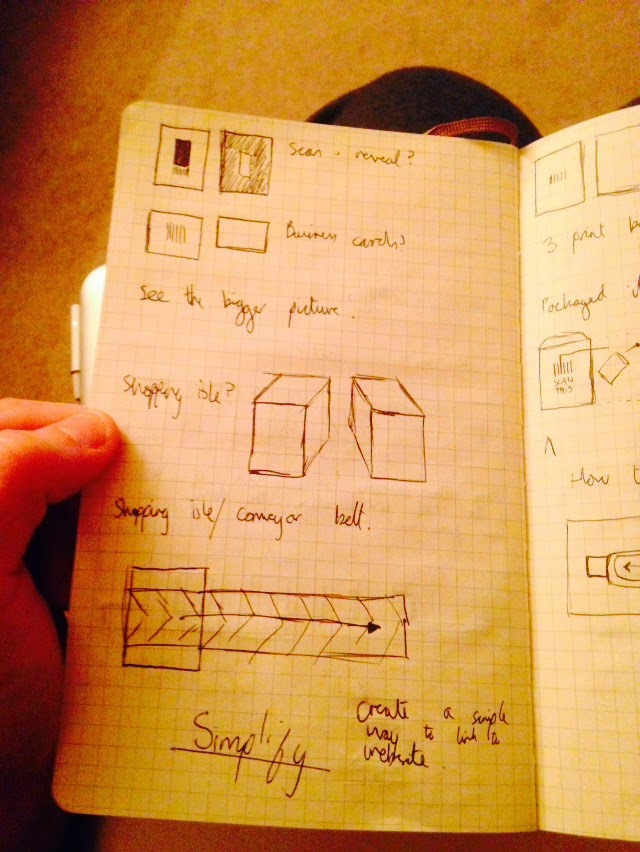 Scan + reveal?
Business cards?
See the bigger picture.
Shopping isle?
Shopping isle/ conveyor belt.
Simplify
Create a simple
way to link to
website.
3 print
Packaged
SCAN
THIS
How